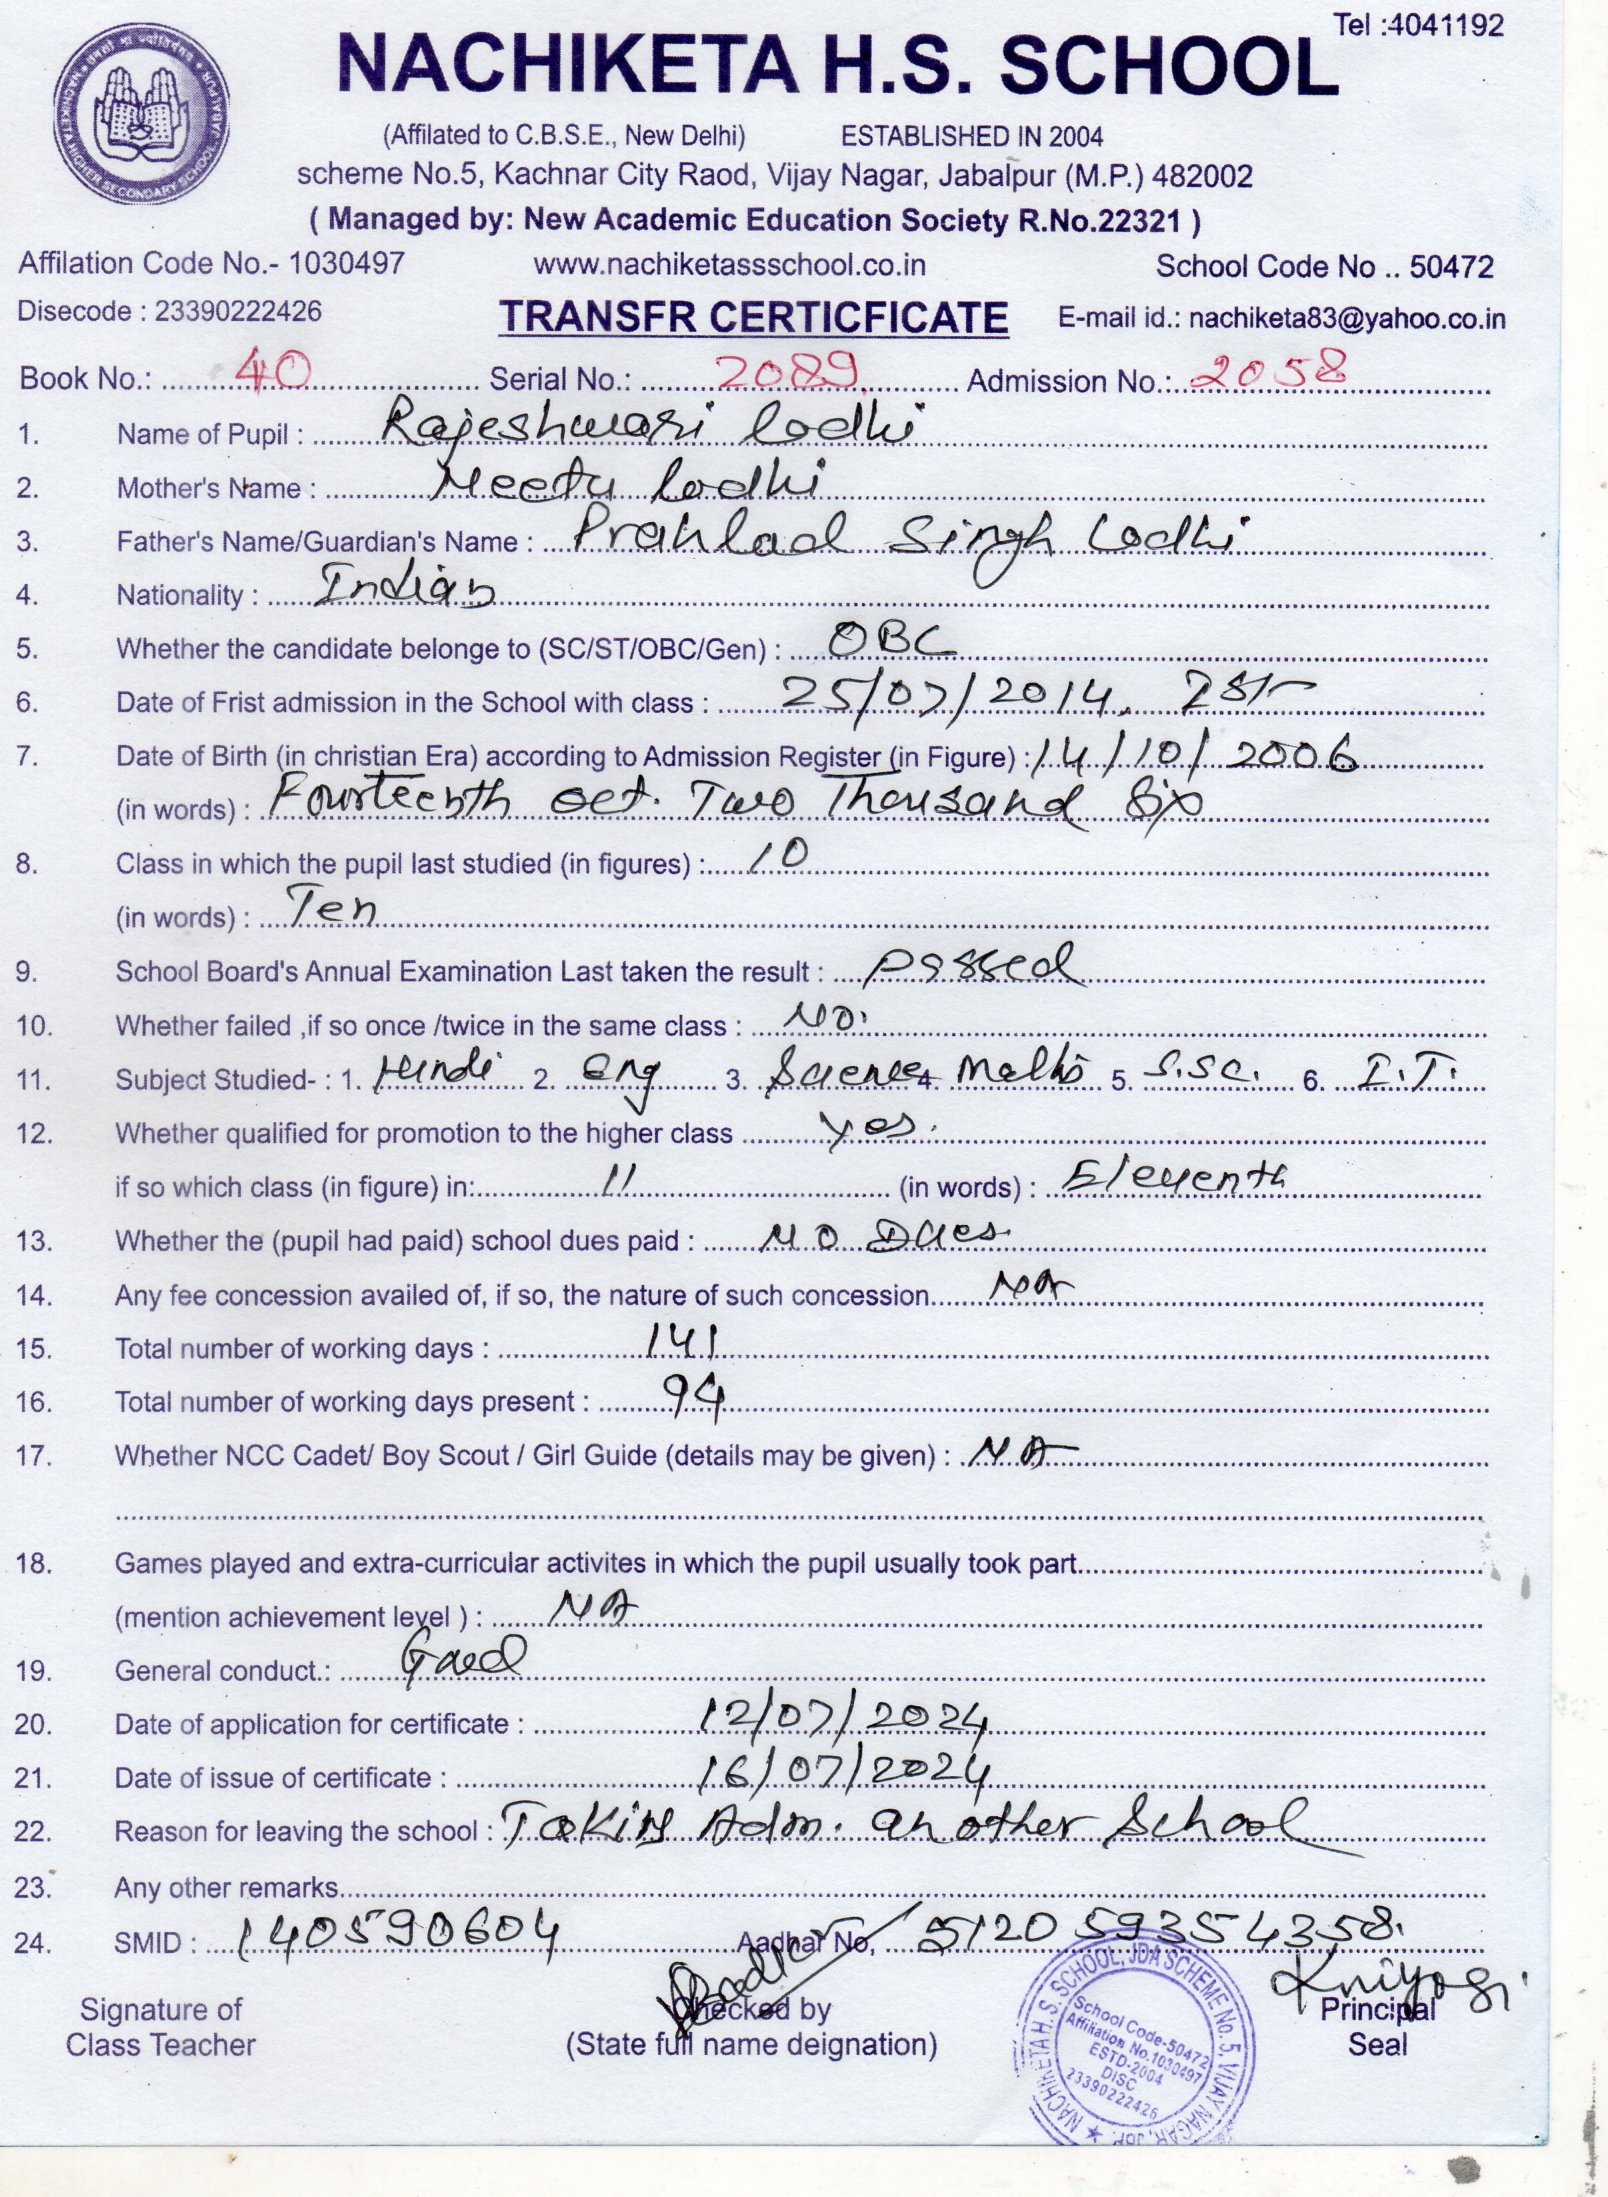 Tel :4041192
NACHIKETA H.S. SCHOOL
(Affilated to C.B.S.E., New Delhi) ESTABLISHED IN 2004
scheme No.5, Kachnar City Raod, Vijay Nagar, Jabalpur (M.P.) 482002
( Managed by: New Academic Education Society R.No.22321 )
Affilation Code No.- 1030497 www.nachiketassschool.co.in School Code No .. 50472
Disecode : 23390222426 TRANSFR CERTICFICATE E-mail id.: nachiketa83@yahoo.co.in
Book No.: 40 Serial No.: 2089 Admission No.: 2058
1. Name of Pupil : Rajeshwari Lodhi
2. Mother's Name : Neetu Lodhi
3. Father's Name/Guardian's Name : Prahlad Singh Lodhi
4. Nationality : Indian
5. Whether the candidate belonge to (SC/ST/OBC/Gen) : OBC
6. Date of Frist admission in the School with class : 25/07/2014, Ist
7. Date of Birth (in christian Era) according to Admission Register (in Figure) : 14/10/2006
(in words) : Fourteenth oct. Two Thousand Six
8. Class in which the pupil last studied (in figures) : 10
(in words) : Ten
9. School Board's Annual Examination Last taken the result : passed
10. Whether failed ,if so once /twice in the same class : No.
11. Subject Studied- : 1. Hindi 2. Eng 3. Science 4. Maths 5. S.Sc. 6. I.T.
12. Whether qualified for promotion to the higher class yes.
if so which class (in figure) in: 11 (in words) : Eleventh
13. Whether the (pupil had paid) school dues paid : No Dues
14. Any fee concession availed of, if so, the nature of such concession NA
15. Total number of working days : 141
16. Total number of working days present : 94
17. Whether NCC Cadet/ Boy Scout / Girl Guide (details may be given) : NA
18. Games played and extra-curricular activites in which the pupil usually took part
(mention achievement level ) : NA
19. General conduct.: Good
20. Date of application for certificate : 12/07/2024
21. Date of issue of certificate : 16/07/2024
22. Reason for leaving the school : Taking Adm. another School
23. Any other remarks
24. SMID : 140590604 Aadhar No, 5120 5935 4358
Signature of Checked by Principal
Class Teacher (State full name deignation) Seal
Kniyogi
NACHIKETA H.S. SCHOOL, JDA SCHEME No. 5, VIJAY NAGAR, JBP.
School Code-50472
Affiliation No.1030497
ESTD-2004
DISC
23390222426